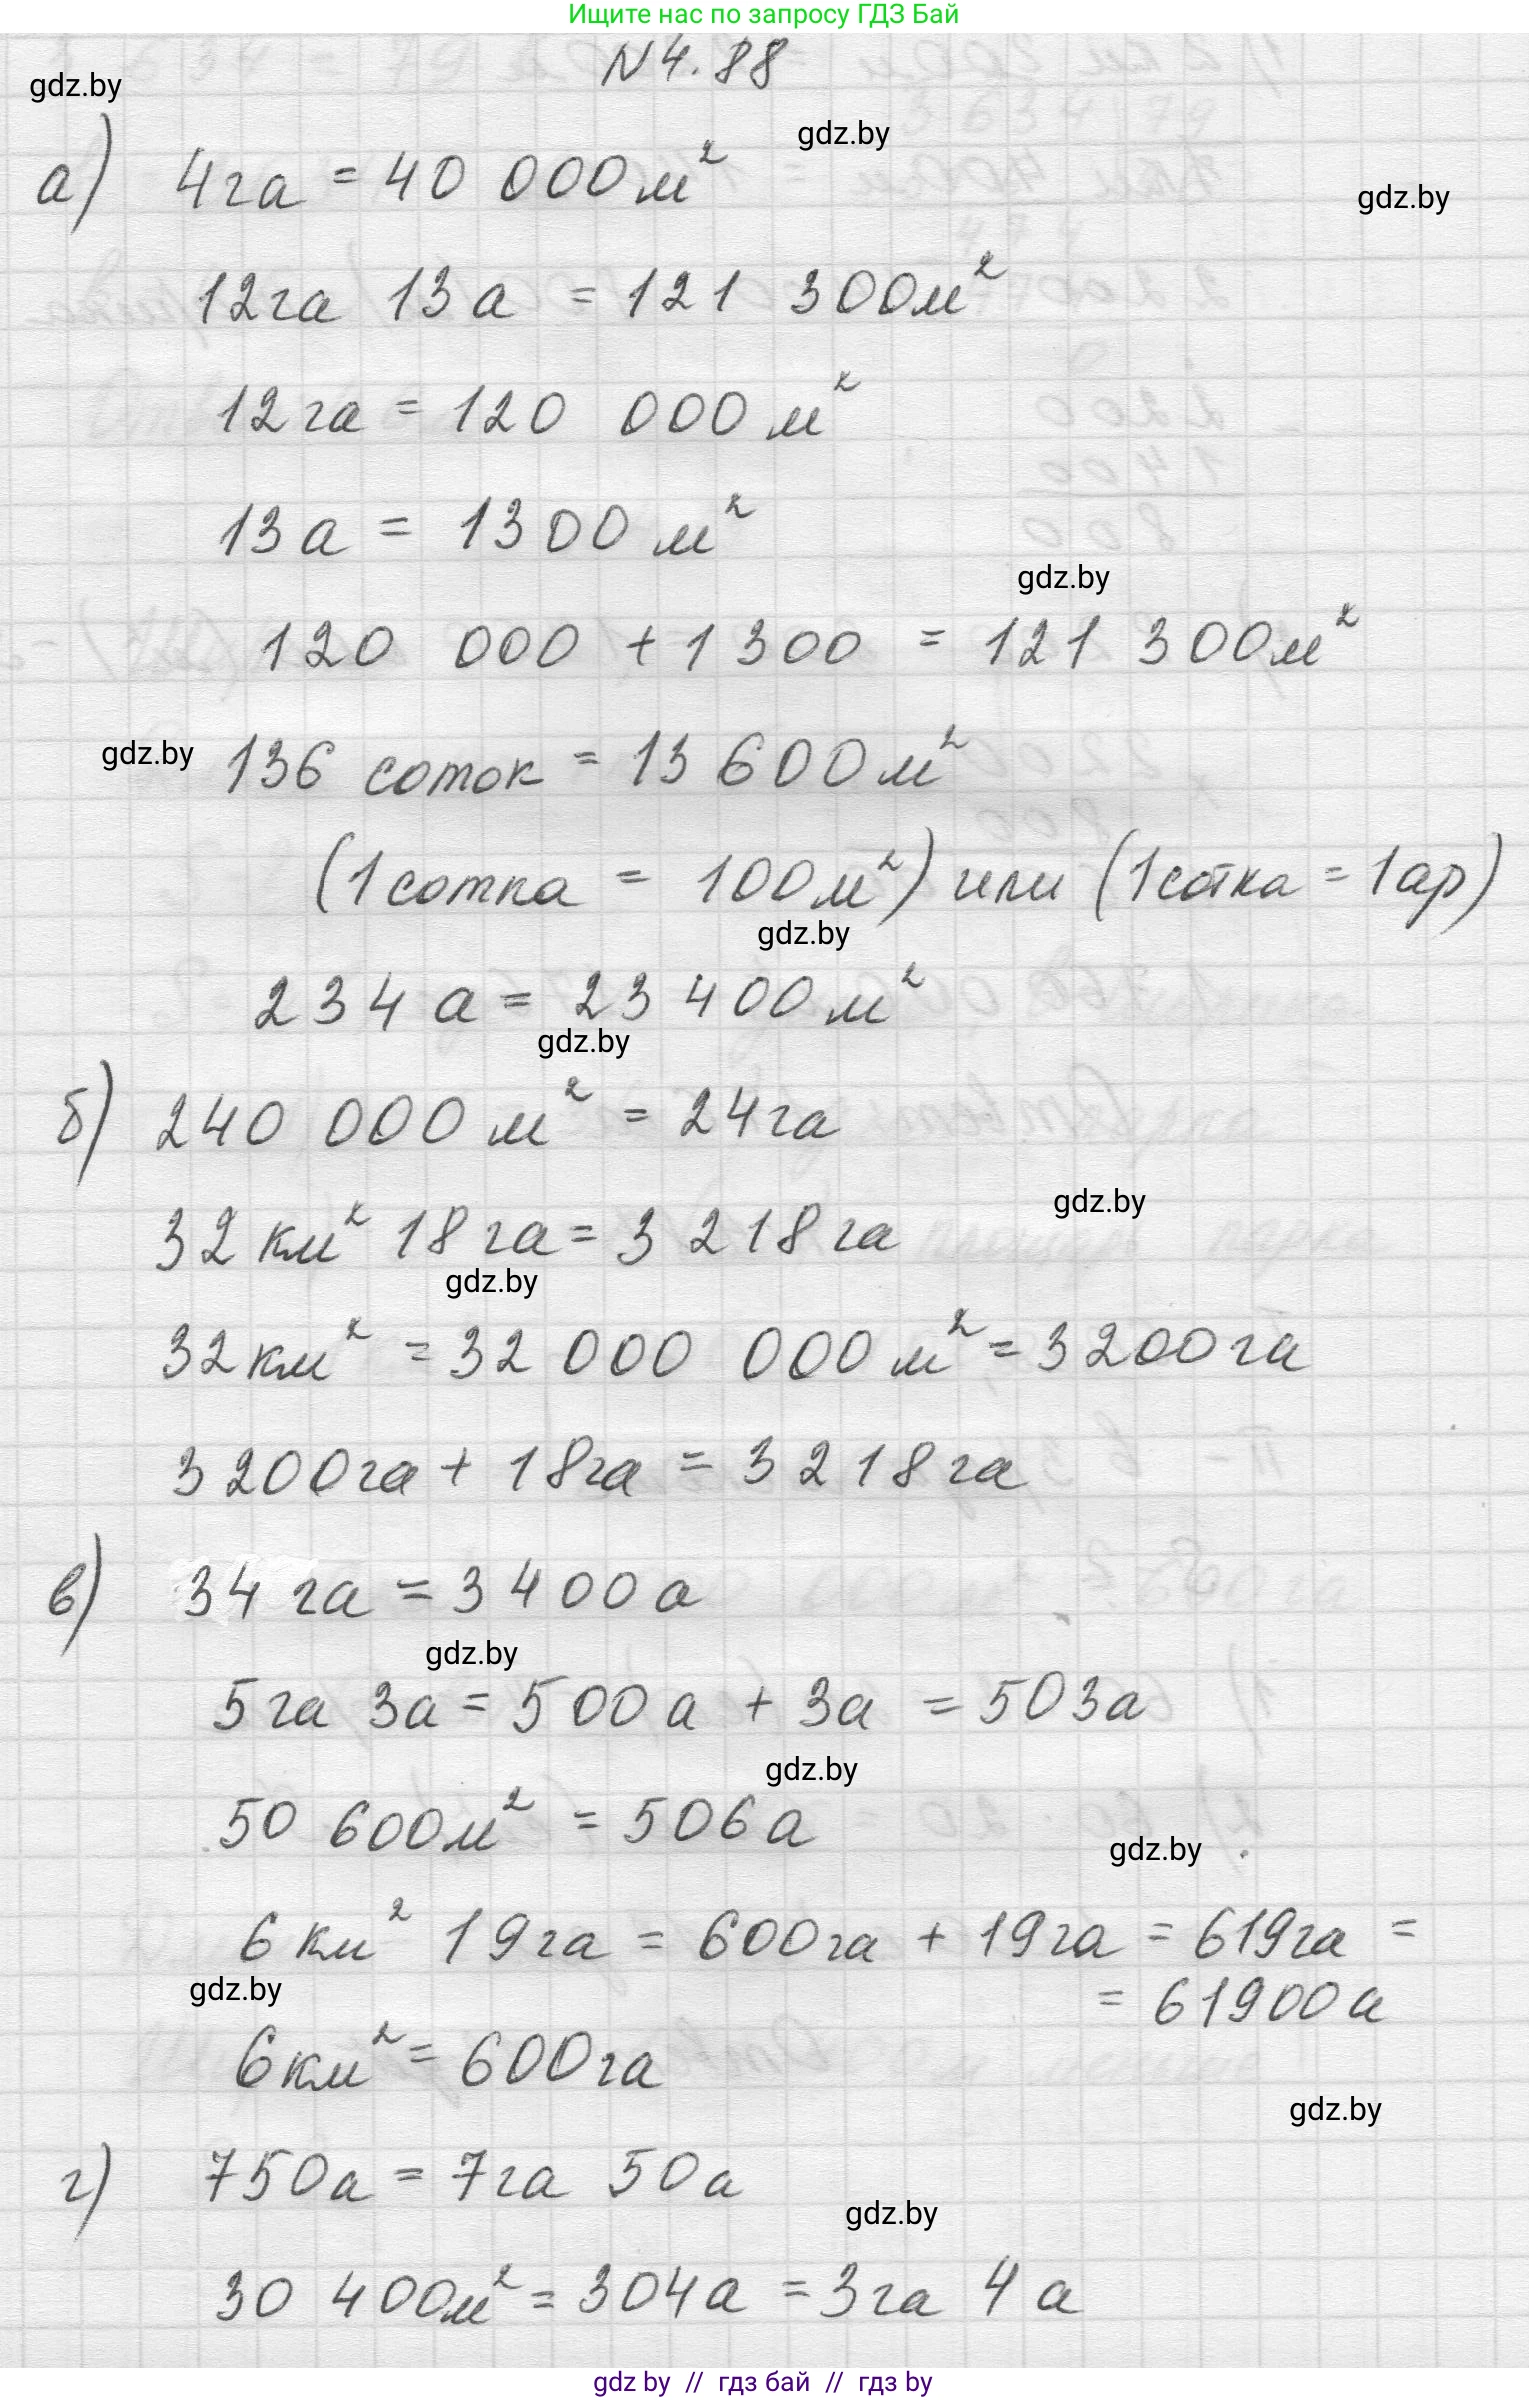 Ищите нас по запросу ГДЗ Бай
N 4.88
gdz.by
gdz.by
а) 4га = 40 000м²
gdz.by
12га 13а = 121 300м²
12га = 120 000м²
13а = 1300м²
gdz.by
120 000 + 1 300 = 121 300м²
gdz.by
136 соток = 13 600м²
(1 сотка = 100м²) или (1 сотка = 1ар)
gdz.by
234 а = 23 400м²
gdz.by
б) 240 000м² = 24га
gdz.by
32 км² 18 га = 3 218га
gdz.by
32км² = 32 000 000м² = 3200га
3 200га + 18га = 3 218га
в) 34 га = 3 400а
gdz.by
5га 3а = 500а + 3а = 503а
gdz.by
50 600м² = 506а
gdz.by
6км² 19га = 600га + 19га = 619га =
gdz.by
= 61900а
6км² = 600га
gdz.by
г) 750а = 7га 50а
gdz.by
30 400м² = 304а = 3га 4а
gdz by // гдз бай // гдз by